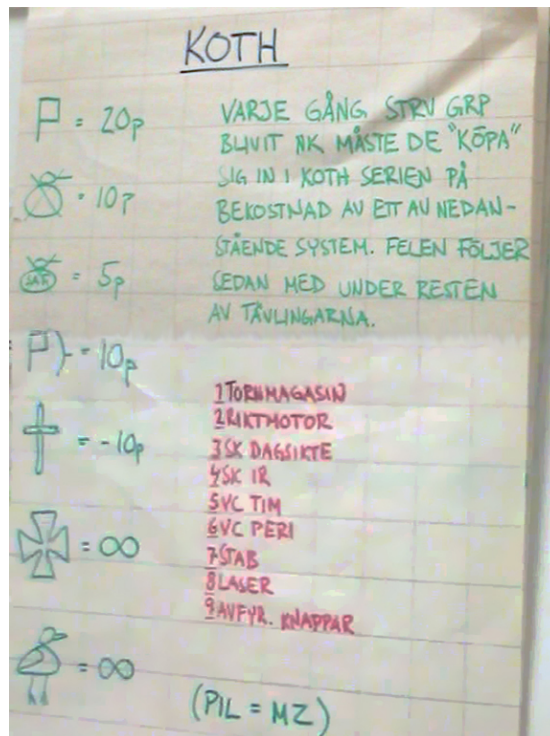 KOTH
P = 20p
= 10p
= 5p
P} = 10p
= -10p
= ∞
= ∞
VARJE GÅNG STRV GRP
BLIVIT NK MÅSTE DE "KÖPA"
SIG IN I KOTH SERIEN PÅ
BEKOSTNAD AV ETT AV NEDAN-
STÅENDE SYSTEM. FELEN FÖLJER
SEDAN MED UNDER RESTEN
AV TÄVLINGARNA.
1 TORNMAGASIN
2 RIKTMOTOR
3 SK DAGSIKTE
4 SK IR
5 VC TIM
6 VC PERI
7 STAB
8 LASER
9 AVFYR. KNAPPAR
(PIL = MZ)